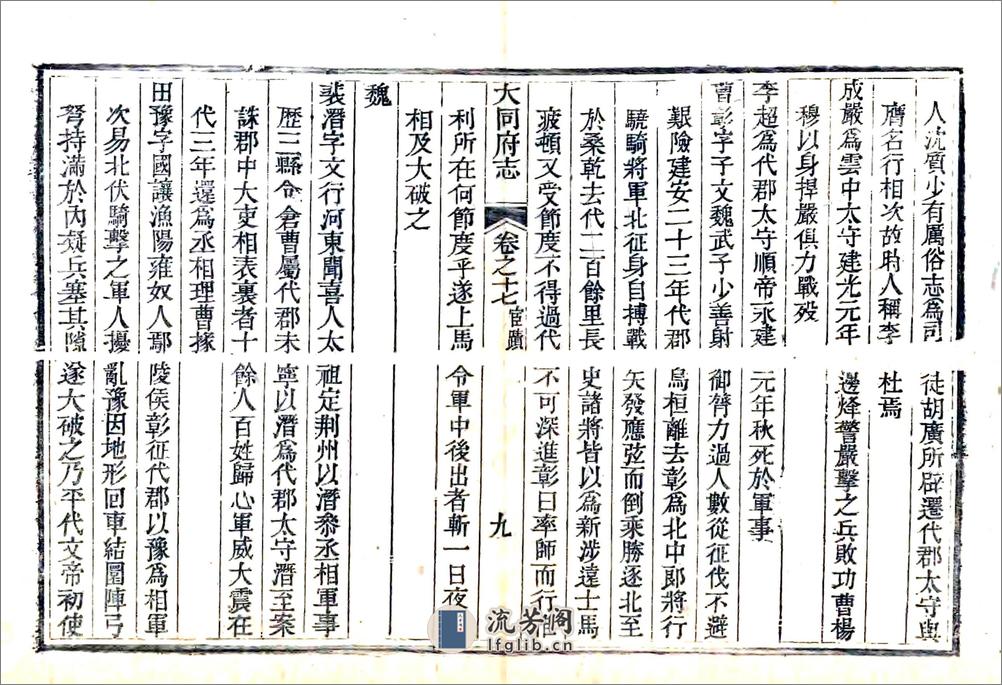 人沈質少有厲俗志爲司徒胡廣所辟遷代郡太守與
膺名行相次故時人稱李杜焉
成嚴爲雲中太守建光元年邊烽警嚴擊之兵敗功曹楊
穆以身捍嚴俱力戰歿
李超爲代郡太守順帝永建元年秋死於軍事
曹彰字子文魏武子少善射御膂力過人數從征伐不避
艱險建安二十三年代郡烏桓離去彰爲北中郎將行
驍騎將軍北征身自搏戰矢發應弦而倒乘勝逐北至
於桑乾去代二百餘里長史諸將皆以爲新涉遠士馬
疲頓又受節度不得過代不可深進彰曰率師而行惟
大同府志 卷之十七 宦蹟 九
利所在何節度乎遂上馬令軍中後出者斬一日夜
相及大破之
魏
裴潛字文行河東聞喜人太祖定荆州以潛叅丞相軍事
歷三縣令倉曹屬代郡未寧以潛爲代郡太守潛至案
誅郡中大吏相表裏者十餘人百姓歸心軍威大震在
代三年還爲丞相理曹掾
田豫字國讓漁陽雍奴人鄢陵侯彰征代郡以豫爲相軍
次易北伏騎擊之軍人擾亂豫因地形回車結圍陣弓
弩持滿於內疑兵塞其隙遂大破之乃平代文帝初使
流芳阁
lfglib.cn